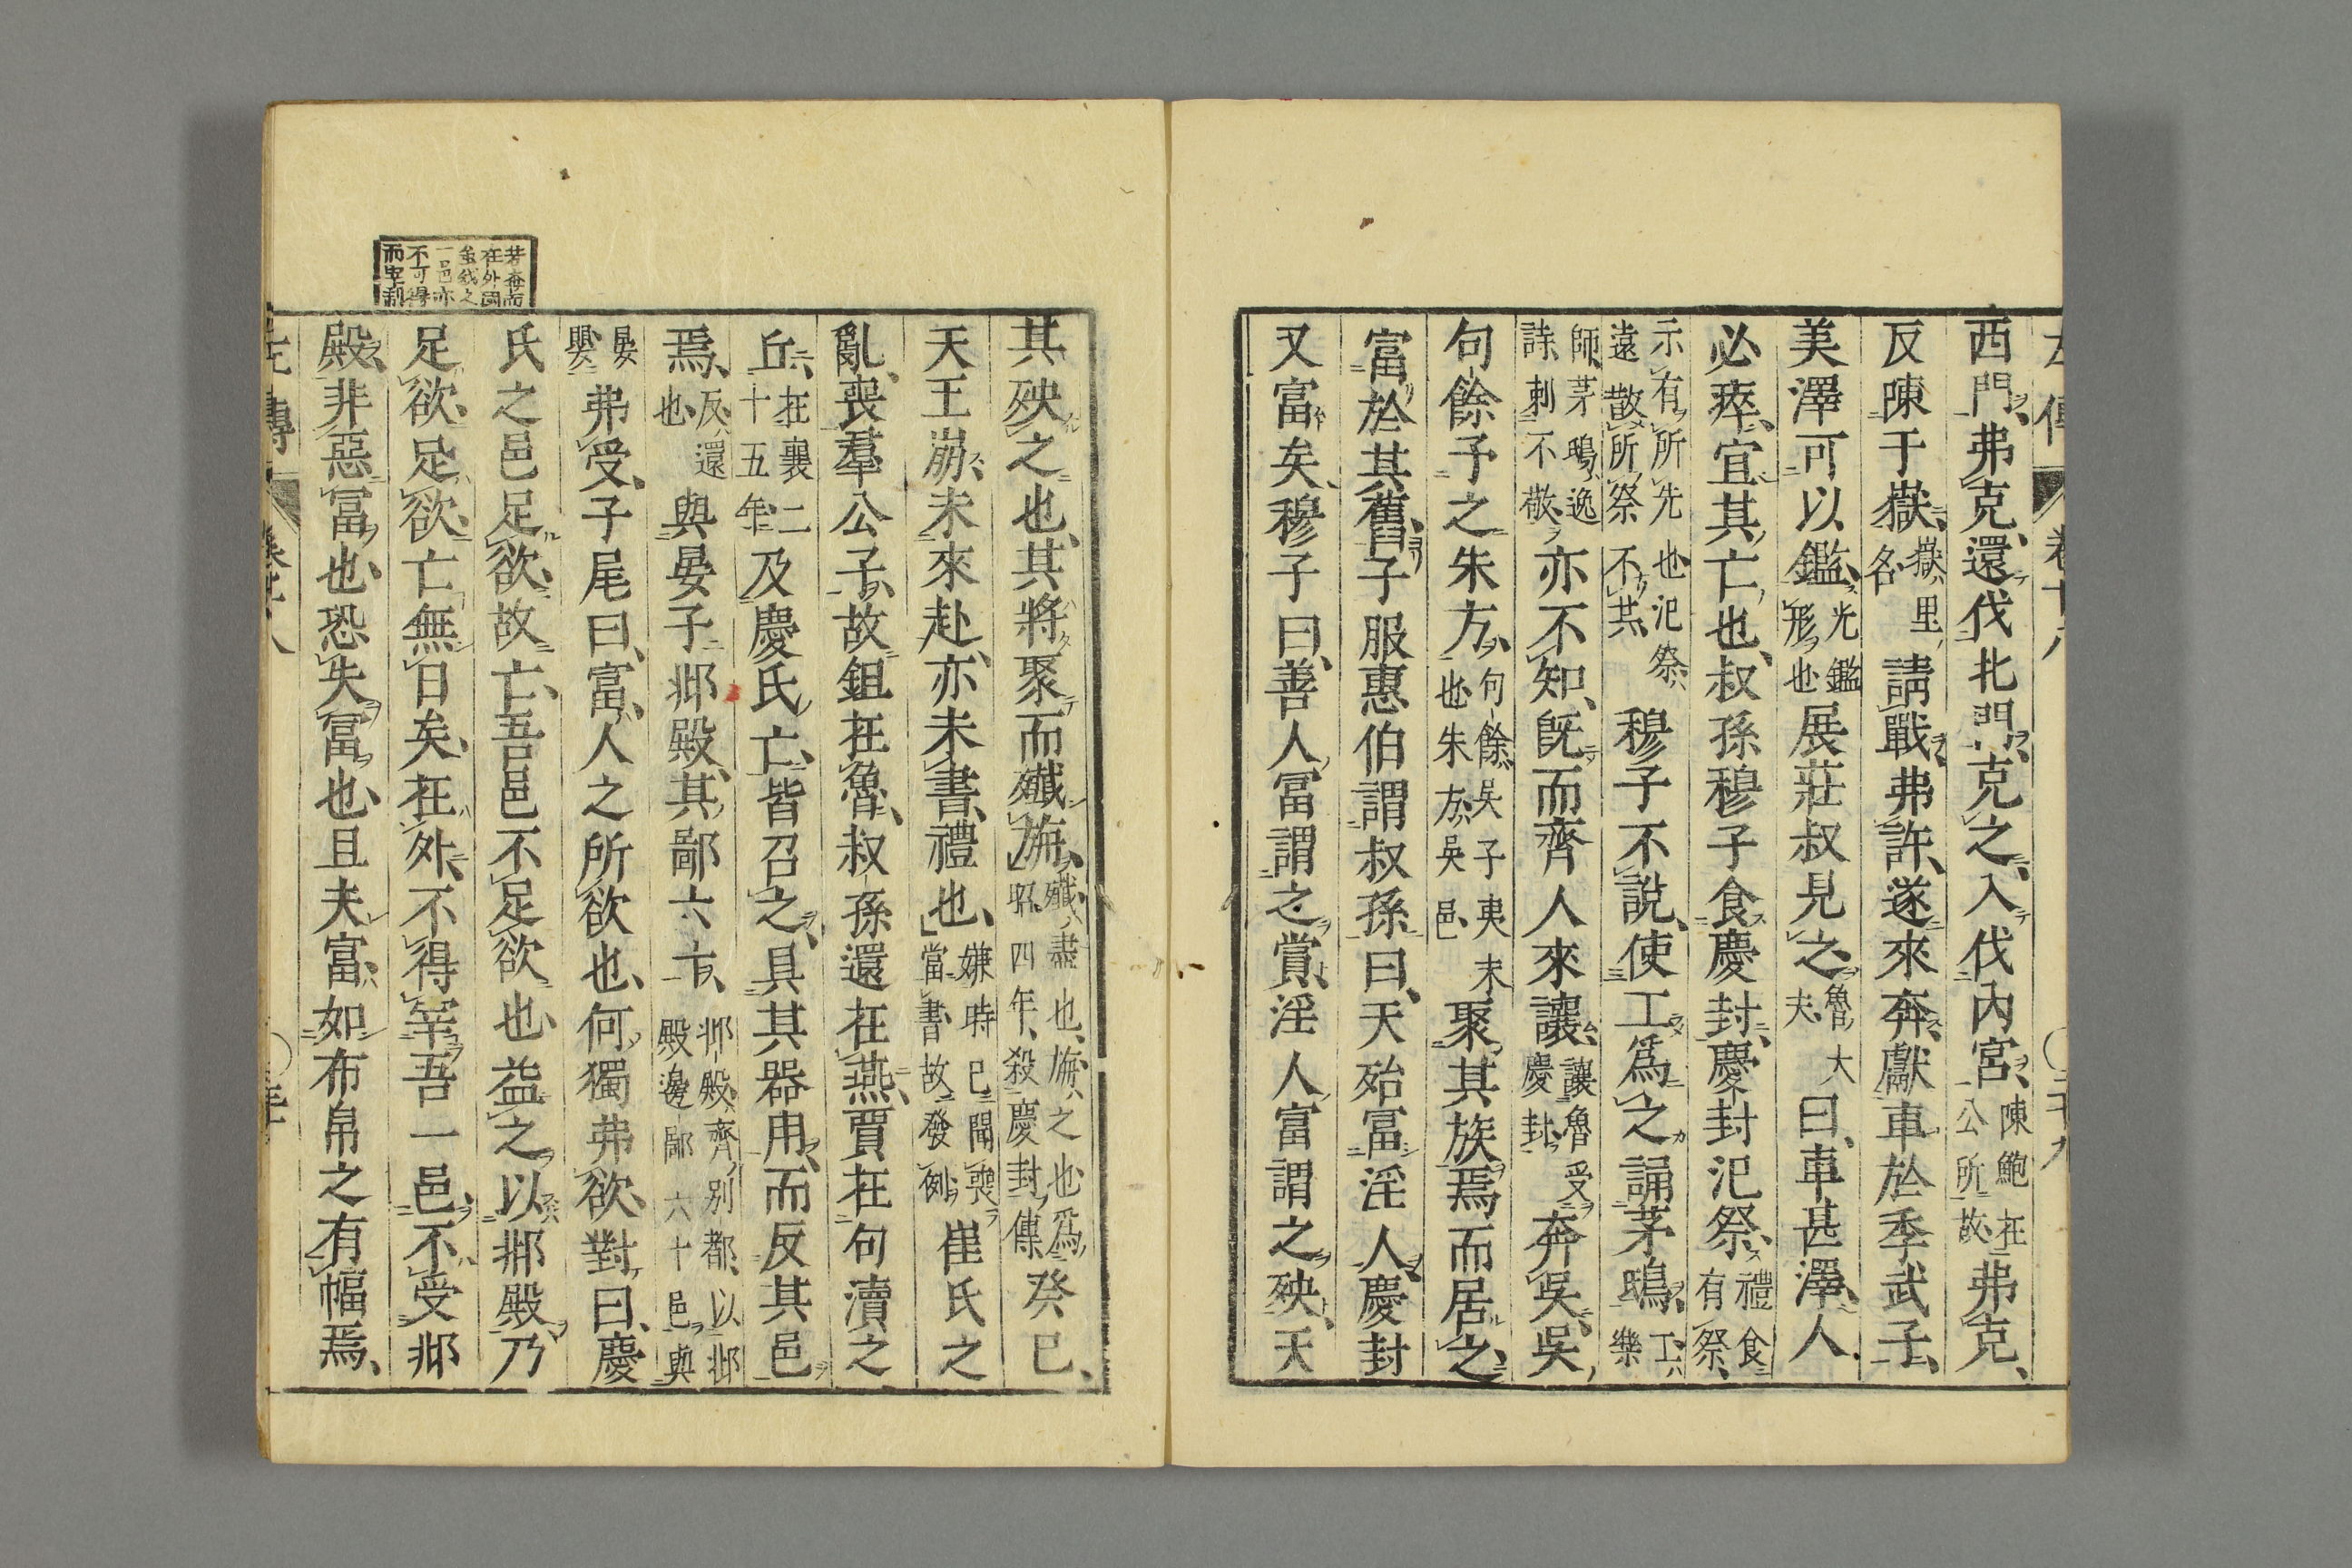 西門弗克還伐北門克之入伐內宮陳鮑在公所故弗克
反陳于嶽嶽里名請戰弗許遂來奔獻車於季武子
美澤可以鑑光鑑形也展莊叔見之魯大夫曰車甚澤人
必瘁宜其亡也叔孫穆子食慶封慶封氾祭禮食有祭
示有所先也氾祭遠散所祭不共穆子不說使工爲之誦茅鴟工樂
師茅鴟逸詩刺不敬亦不知既而齊人來讓讓魯受慶封奔吳吳
句餘予之朱方句餘吳子夷末也朱方吳邑聚其族焉而居之
富於其舊子服惠伯謂叔孫曰天殆富淫人慶封
又富矣穆子曰善人富謂之賞淫人富謂之殃天
其殃之也其將聚而殲旃殲盡也旃之也爲昭四年殺慶封傳癸巳
天王崩未來赴亦未書禮也嫌時已聞喪當書故發例崔氏之
亂喪羣公子故鉏在魯叔孫還在燕賈在句瀆之
丘在襄二十五年及慶氏亡皆召之具其器用而反其邑
焉反還也與晏子邶殿其鄙六十邶殿齊別都以邶殿邊鄙六十邑與
晏嬰弗受子尾曰富人之所欲也何獨弗欲對曰慶
氏之邑足欲故亡吾邑不足欲也益之以邶殿乃
足欲足欲亡無日矣在外不得宰吾一邑不受邶
殿非惡富也恐失富也且夫富如布帛之有幅焉
在外國
一邑亦
不可得
而宰制